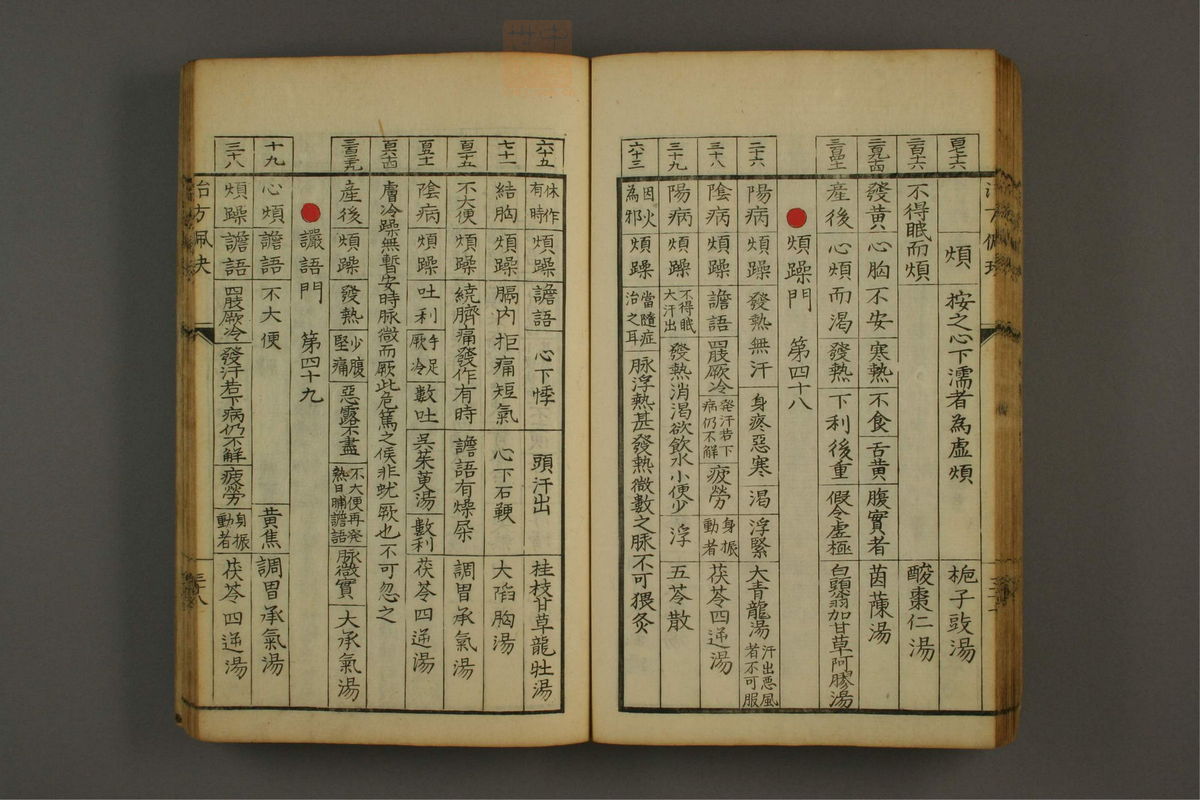 百七十六 煩 按之心下濡者為虛煩 梔子豉湯
不得眠而煩 酸棗仁湯
發黃 心胸不安 寒熱不食 舌黃 腹實者 茵蔯湯
產後 心煩而渴 發熱 下利後重 假令虛極 白頭翁加甘草阿膠湯
煩躁門 第四十八
二十六 陽病 煩躁 發熱無汗 身疼惡寒 渴 浮緊 大青龍湯 汗出惡風者不可服
三十八 陰病 煩躁 譫語 四肢厥冷 發汗若下病仍不解 疲勞 身振動者 茯苓四逆湯
三十九 陽病 煩躁 不得眠大汗出 發熱消渴欲飲水小便少 浮 五苓散
六十三 因火為邪 煩躁 當隨症治之耳 脉浮熱甚發熱微數之脉不可猥灸
六十五 休作有時 煩躁 譫語 心下悸 頭汗出 桂枝甘草龍牡湯
七十一 結胸 煩躁 膈內拒痛短氣 心下石鞕 大䧟胸湯
百十五 不大便 煩躁 繞臍痛發作有時 譫語有燥屎 調胃承氣湯
陰病 煩躁 吐利 手足厥冷 數吐 吳茱萸湯 數利 茯苓四逆湯
膚冷躁無暫安時脉微而厥此危篤之候非蚘厥也不可忽之
產後 煩躁 發熱 少腹堅痛 惡露不盡 不大便再發熱日晡譫語 脉微實 大承氣湯
讝語門 第四十九
十九 心煩譫語 不大便 黃焦 調胃承氣湯
三十八 煩躁 譫語 四肢厥冷 發汗若下病仍不解 疲勞 身振動者 茯苓四逆湯
治方佩
三十八